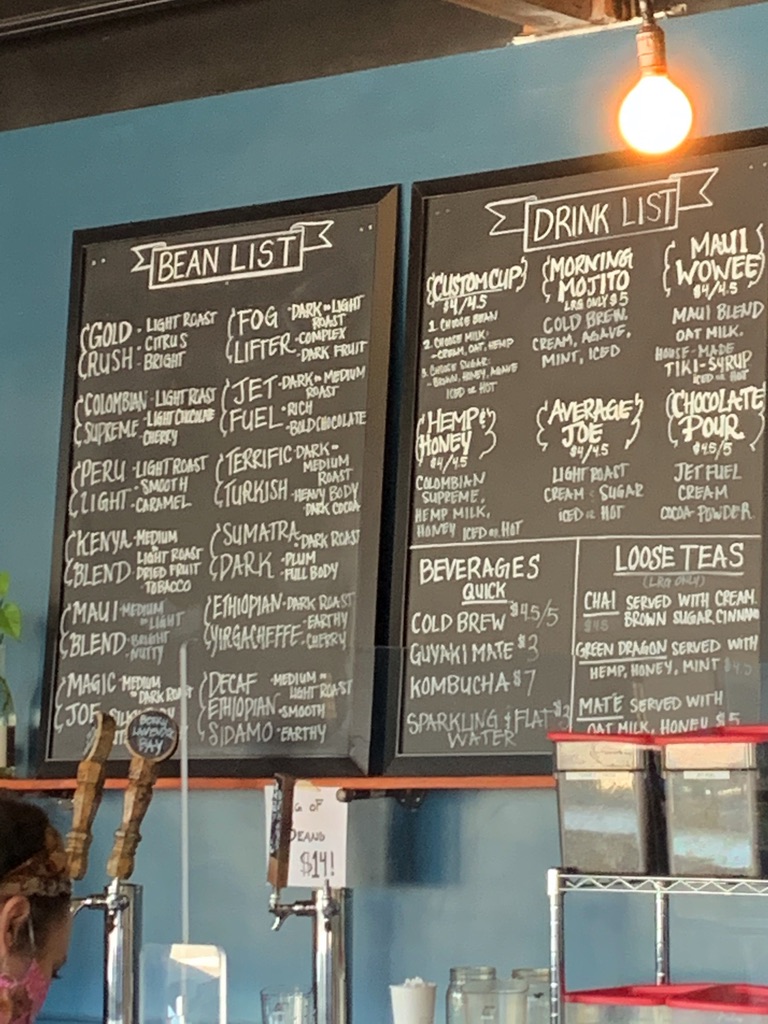 BEAN LIST
GOLD RUSH
- LIGHT ROAST
- CITRUS
- BRIGHT
COLOMBIAN SUPREME
- LIGHT ROAST
- LIGHT CHOCOLATE
- CHERRY
PERU LIGHT
- LIGHT ROAST
- SMOOTH
- CARAMEL
KENYA BLEND
- MEDIUM
LIGHT ROAST
DRIED FRUIT
TOBACCO
MAUI BLEND
- MEDIUM
LIGHT
- BRIGHT
- NUTTY
MAGIC JOE
- MEDIUM
DARK ROAST
FOG LIFTER
- DARK LIGHT
ROAST
- COMPLEX
- DARK FRUIT
JET FUEL
- DARK MEDIUM
ROAST
- RICH
- BOLD CHOCOLATE
TERRIFIC TURKISH
- DARK
MEDIUM
ROAST
- HEAVY BODY
- DARK COCOA
SUMATRA DARK
- DARK ROAST
- PLUM
- FULL BODY
ETHIOPIAN YIRGACHEFFE
- DARK ROAST
- EARTHY
- CHERRY
DECAF ETHIOPIAN SIDAMO
- MEDIUM
LIGHT ROAST
- SMOOTH
- EARTHY
DRINK LIST
CUSTOM CUP
$4/4.5
1. CHOOSE BEAN
2. CHOOSE MILK:
- CREAM, OAT, HEMP
3. CHOOSE SUGAR:
- BROWN, HONEY, AGAVE
ICED OR HOT
MORNING
MOJITO
LRG ONLY $5
COLD BREW
CREAM, AGAVE,
MINT, ICED
MAUI
WOWEE
$4/4.5
MAUI BLEND
OAT MILK.
HOUSE-MADE
TIKI-SYRUP
ICED OR HOT
HEMP &
HONEY
$4/4.5
COLOMBIAN
SUPREME,
HEMP MILK,
HONEY ICED OR HOT
AVERAGE
JOE
$4/4.5
LIGHT ROAST
CREAM & SUGAR
ICED OR HOT
CHOCOLATE
POUR
$4.5/5
JET FUEL
CREAM
COCOA-POWDER
BEVERAGES
QUICK
COLD BREW $4.5/5
GUYAKI MATE $3
KOMBUCHA $7
SPARKLING & FLAT $3
WATER
LOOSE TEAS
(LRG ONLY)
CHAI SERVED WITH CREAM,
$4.5 BROWN SUGAR, CINNAM
GREEN DRAGON SERVED WITH
HEMP, HONEY, MINT $4.5
MATE SERVED WITH
OAT MILK, HONEY $5
BERRY
LAVENDER
OF
BEANS
$14!